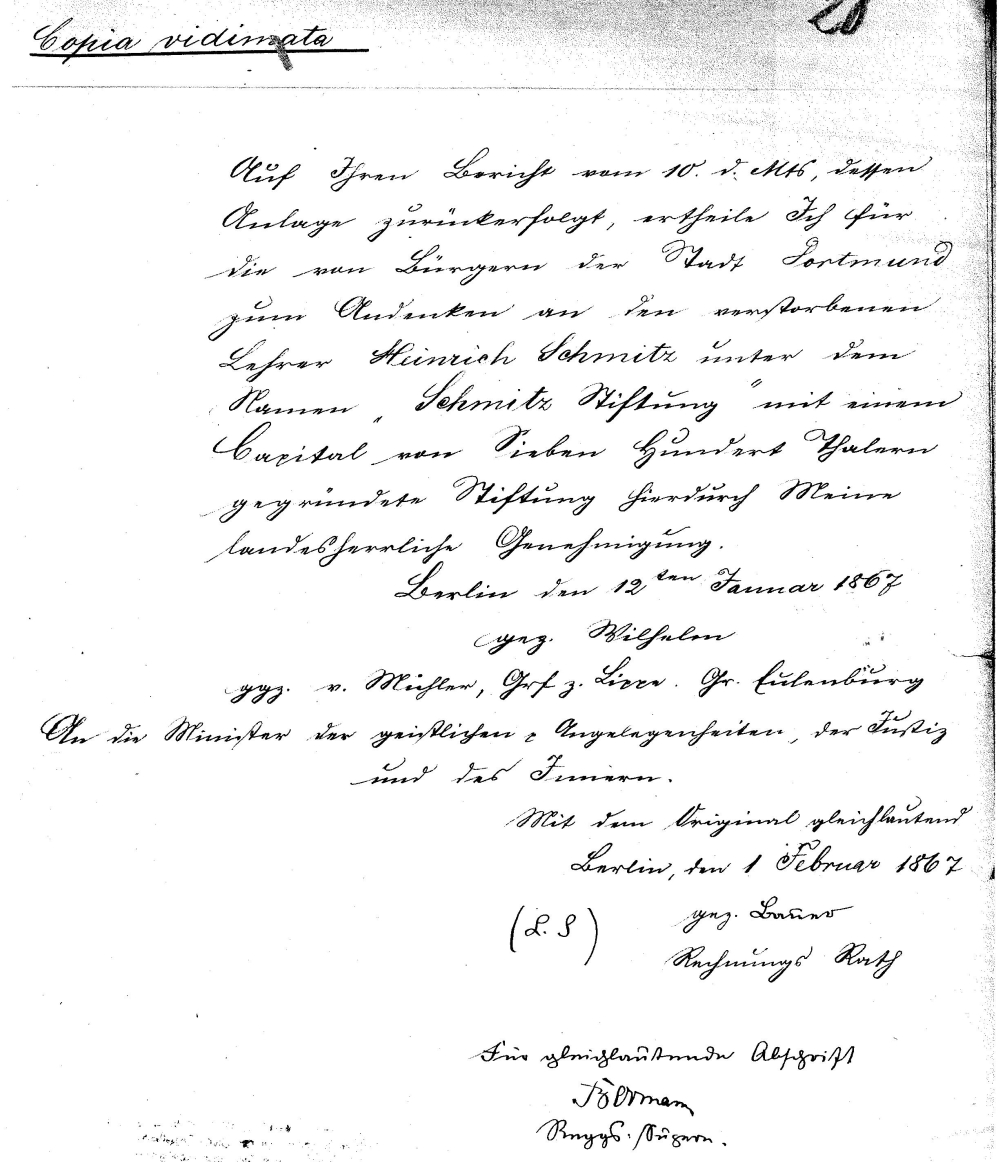 28
Copia vidimata
Auf Ihren Bericht vom 10. d. Mts, dessen
Anlage zurückerfolgt, ertheile Ich für
die von Bürgern der Stadt Dortmund
zum Andenken an den verstorbenen
Lehrer Heinrich Schmitz unter dem
Namen „Schmitz Stiftung" mit einem
Capital von Sieben Hundert Thalern
gegründete Stiftung hierdurch Meine
landesherrliche Genehmigung.
Berlin den 12ten Januar 1867
gez. Wilhelm
ggz. v. Mühler, Grf z. Lippe. Gr. Eulenburg
An die Minister der geistlichen Angelegenheiten, der Justiz
und des Innern.
Mit dem Original gleichlautend
Berlin, den 1 Februar 1867
(L. S) gez. Bauer
Rechnungs Rath
Für gleichlautende Abschrift